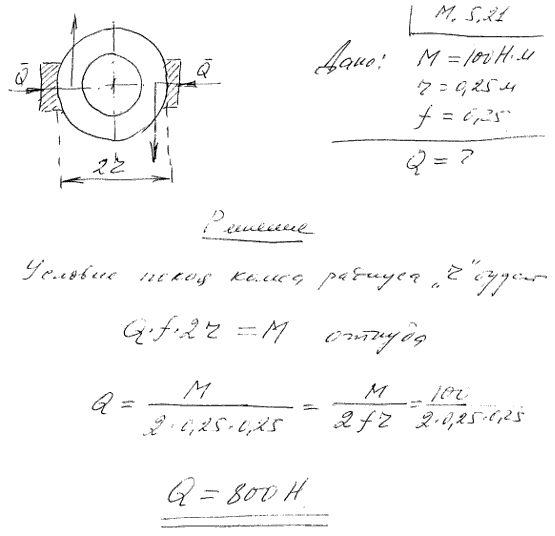 М. 5.21
Дано: M = 100 Н·м
r = 0,25 м
f = 0,25
Q = ?
Q̄ Q̄
2r
Решение
Условие покоя колеса радиуса „r" будет
Q·f·2r = M откуда
Q = M / 2·0,25·0,25 = M / 2fr = 100 / 2·0,25·0,25
Q = 800 Н